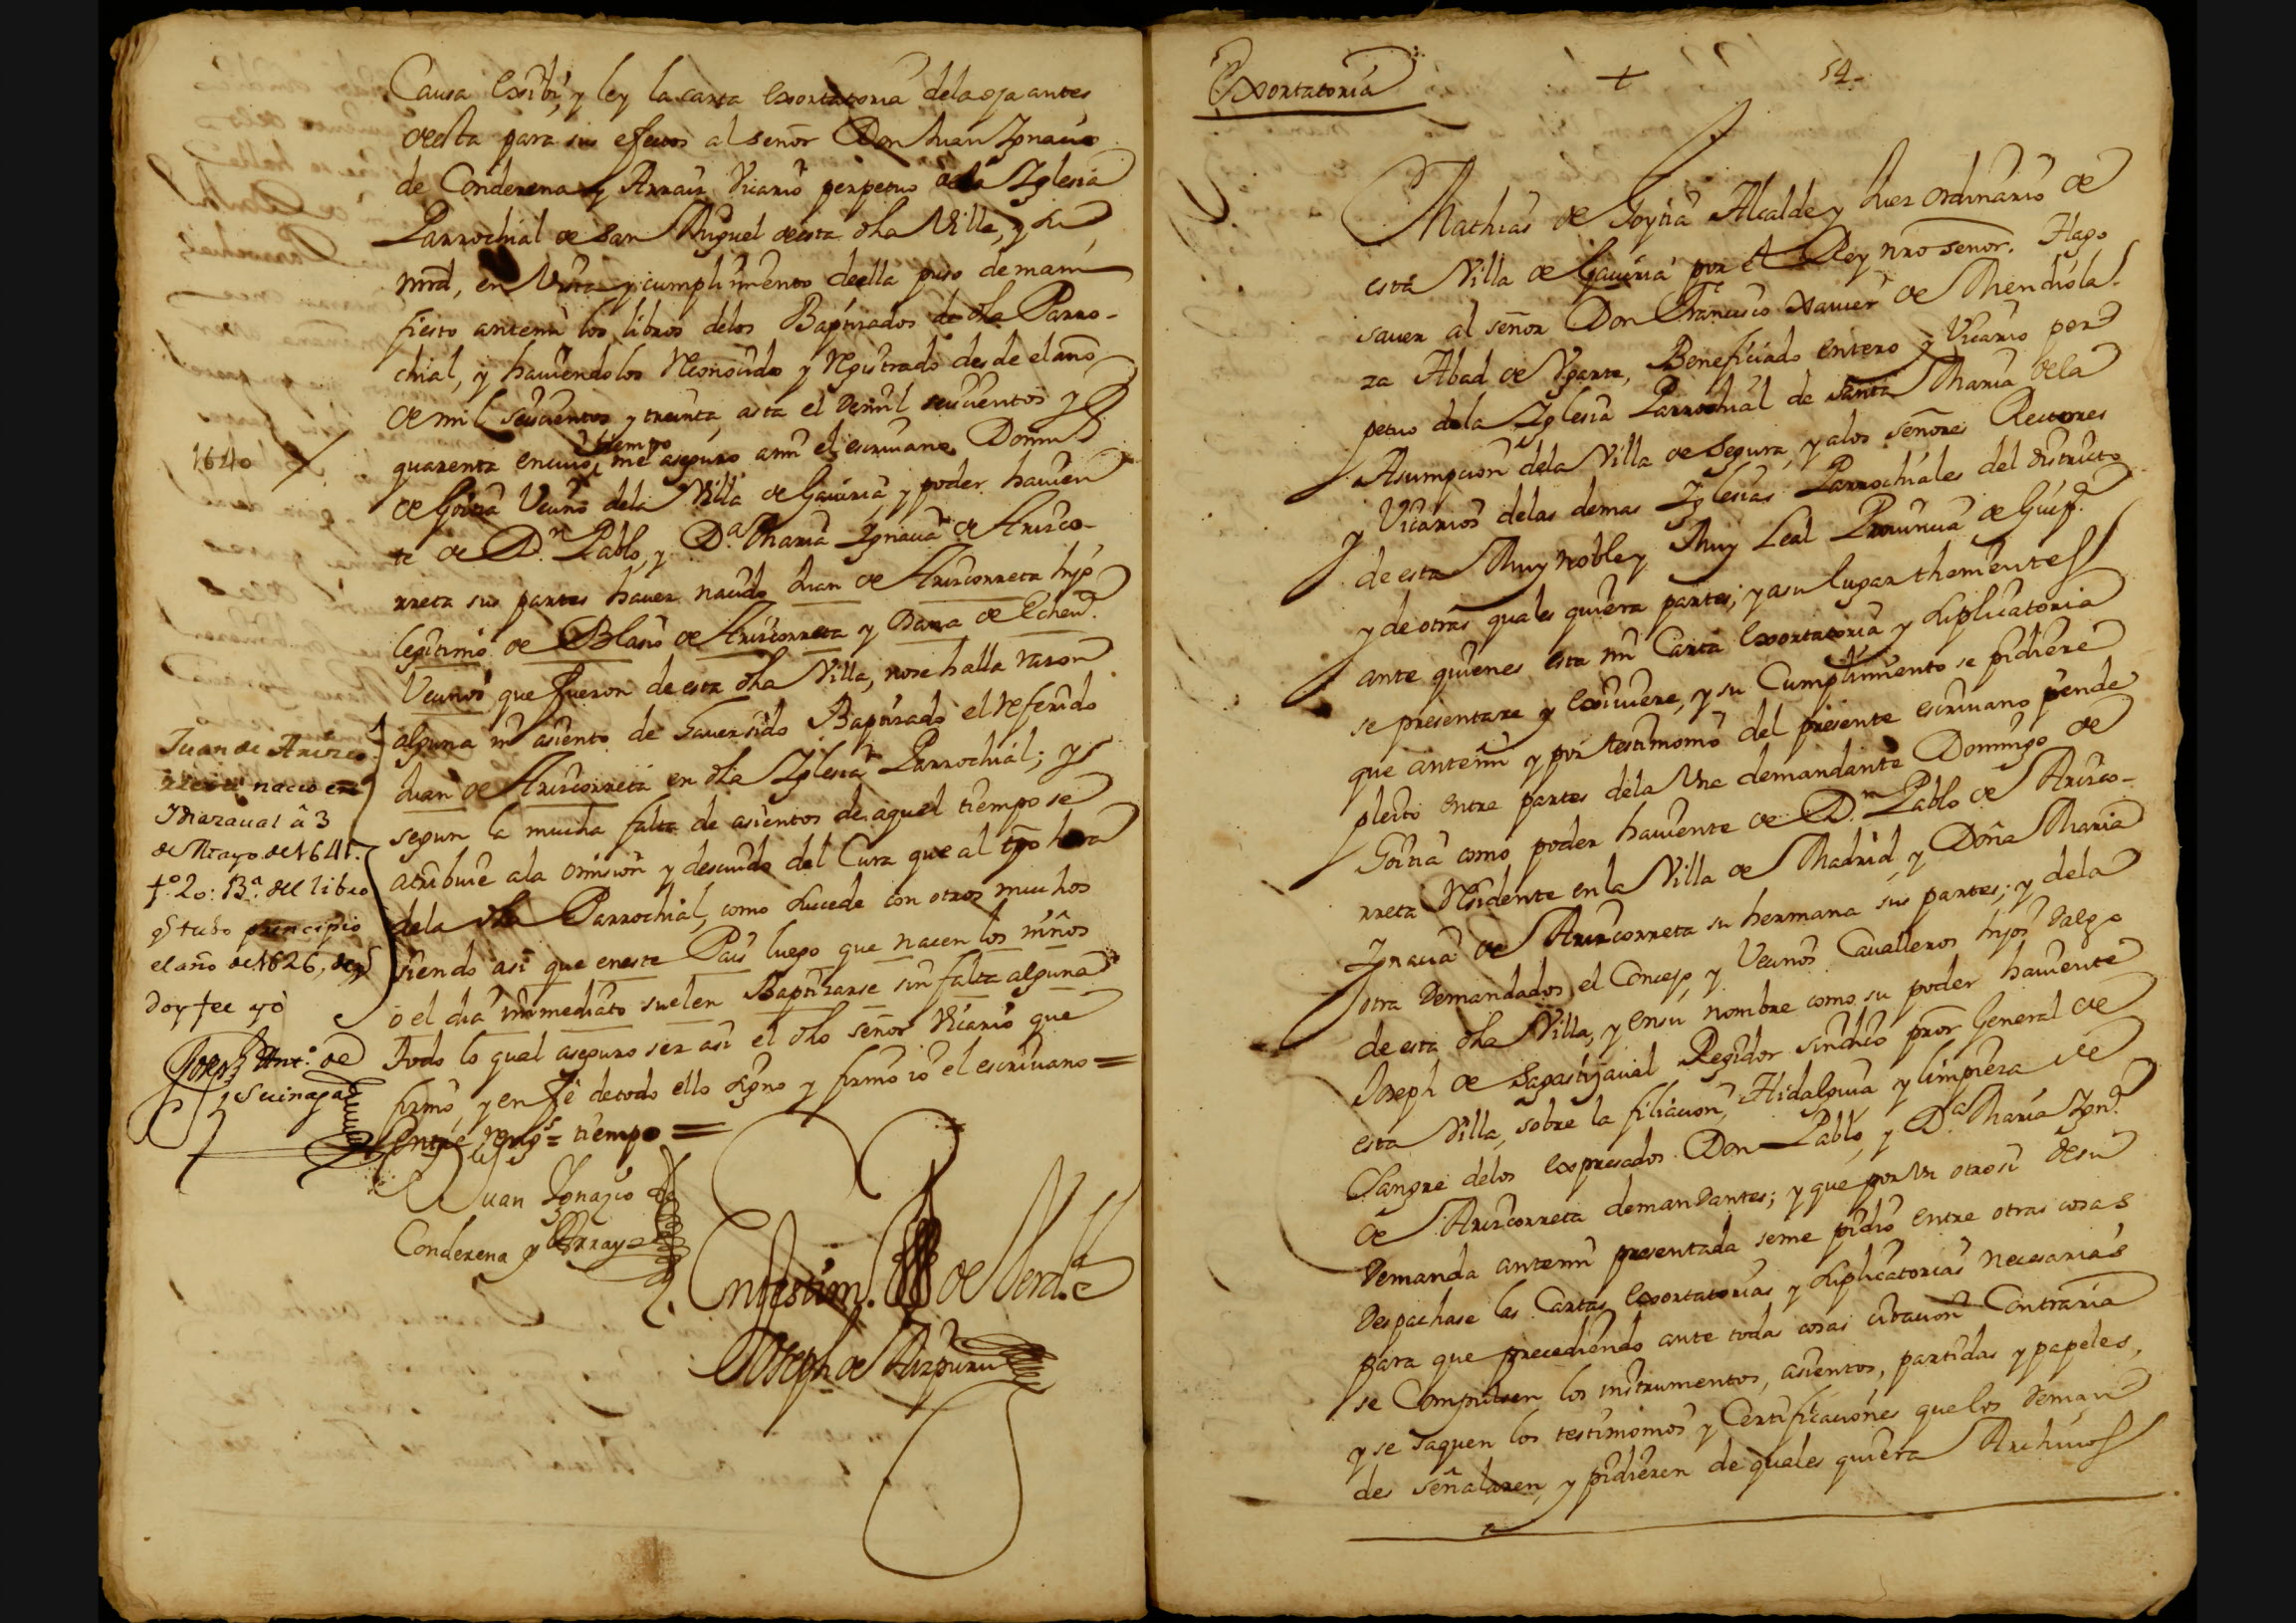 Causa exsibi, y ley la carta exortatoria dela oja antes
de esta para sus efectos al señor Don Juan Ygnacio
de Conderena y Arraiz Vicario perpetuo dela Yglesia
Parrochial de San Miguel de esta dha Villa, y su
mrd, en Vista y cumplimiento de ella puso de mani
fiesto antemi los libros delos Baptizados de dha Parro-
chial, y haviendolos Reconocido y Registrado desde el año
de mil seiscientos y treinta, asta el de mil seiscientos y
tiempo
quarenta en cuio me aseguro a mi el escrivano Domingo
1640
de Goitia Vecino dela Villa de Gaviria, y poder havien
te de Dn. Pablo, y Da. Maria Ygnacia de Arizco-
rreta sus partes haver nacido Juan de Arizcorreta hijo
legitimo de Blasio de Arizcorreta y de Echeva.
Vecinos que fueron de esta dha Villa, no se halla razon
alguna ni asiento de haver sido Baptizado el referido
Juan de Arizcorreta en dha Yglesia Parrochial; y
segun la mucha falta de asientos de aquel tiempo se
atribuie ala omision y descuido del Cura que al tpo hera
dela dha Parrochial, como sucede con otros muchos
siendo asi que en este Pais luego que nacen los niños
o el dia inmediato suelen Baptizarse sin falta alguna
Todo lo qual aseguro ser asi el dho señor Vicario que
firmó, y en fe de todo ello signo y firmo io el escrivano =
Entre Rengs = tiempo =
Juan de Arizco
rreta nacio en
Ydiazaval â 3
de Mayo de 1641.
fo. 20: Ba. del libro
q tubo principio
el año de 1626, de q
doy fee yo
Joseph Anto. de
Suinaga
Juan Ygnazio de
Conderena y Arrayz
En testim. de Verd.
Joseph de Aizpuru
Exortatoria
+
54
Mathias de Goytia Alcalde y Juez ordinario de
esta Villa de Gaviria por el Rey nro señor. Hago
saver al señor Don Francisco Xavier de Mendiola
za Abad de Ugarte, Beneficiado entero y Vicario per
petuo dela Yglesia Parrochial de Santa Maria dela
Asumpcion dela Villa de Segura, y alos señores Rectores
y Vicarios delas demas Yglesias Parrochiales del districto
de esta Muy Noble y Muy Leal Provincia de Guipa.
y de otras quales quiera partes; y a su lugar thenientes
ante quienes esta mi Carta exortatoria y suplicatoria
se presentare y exsiviere, y su Cumplimiento se pidiere
que antemi y por testimonio del presente escrivano pende
pleito entre partes dela Una demandante Domingo de
Goitia como poder haviente de Dn. Pablo de Arizco-
rreta Residente en la Villa de Madrid, y Doña Maria
Ygnacia de Arizcorreta su hermana sus partes; y dela
otra Demandados el Concejo, y Vecinos Cavalleros hijos dalgo
de esta dha Villa, y en su nombre como su poder haviente
Joseph de Sagastiçaval Regidor sindico pror General de
esta Villa, sobre la filiacion, Hidalguia y limpieza de
Sangre delos expresados Don Pablo, y Da. Maria Ygna.
de Arizcorreta demandantes; y que por Un otrosi de su
Demanda antemi presentada se me pidio entre otras cosas
Despachase las Cartas exortatorias y suplicatorias necesarias
para que precediendo ante todas cosas citacion Contraria
se Compulsen los instrumentos, asientos, partidas y papeles,
y se saquen los testimonios y Certificaciones que los deman
des señalaren, y pidieren de quales quiera Archivos